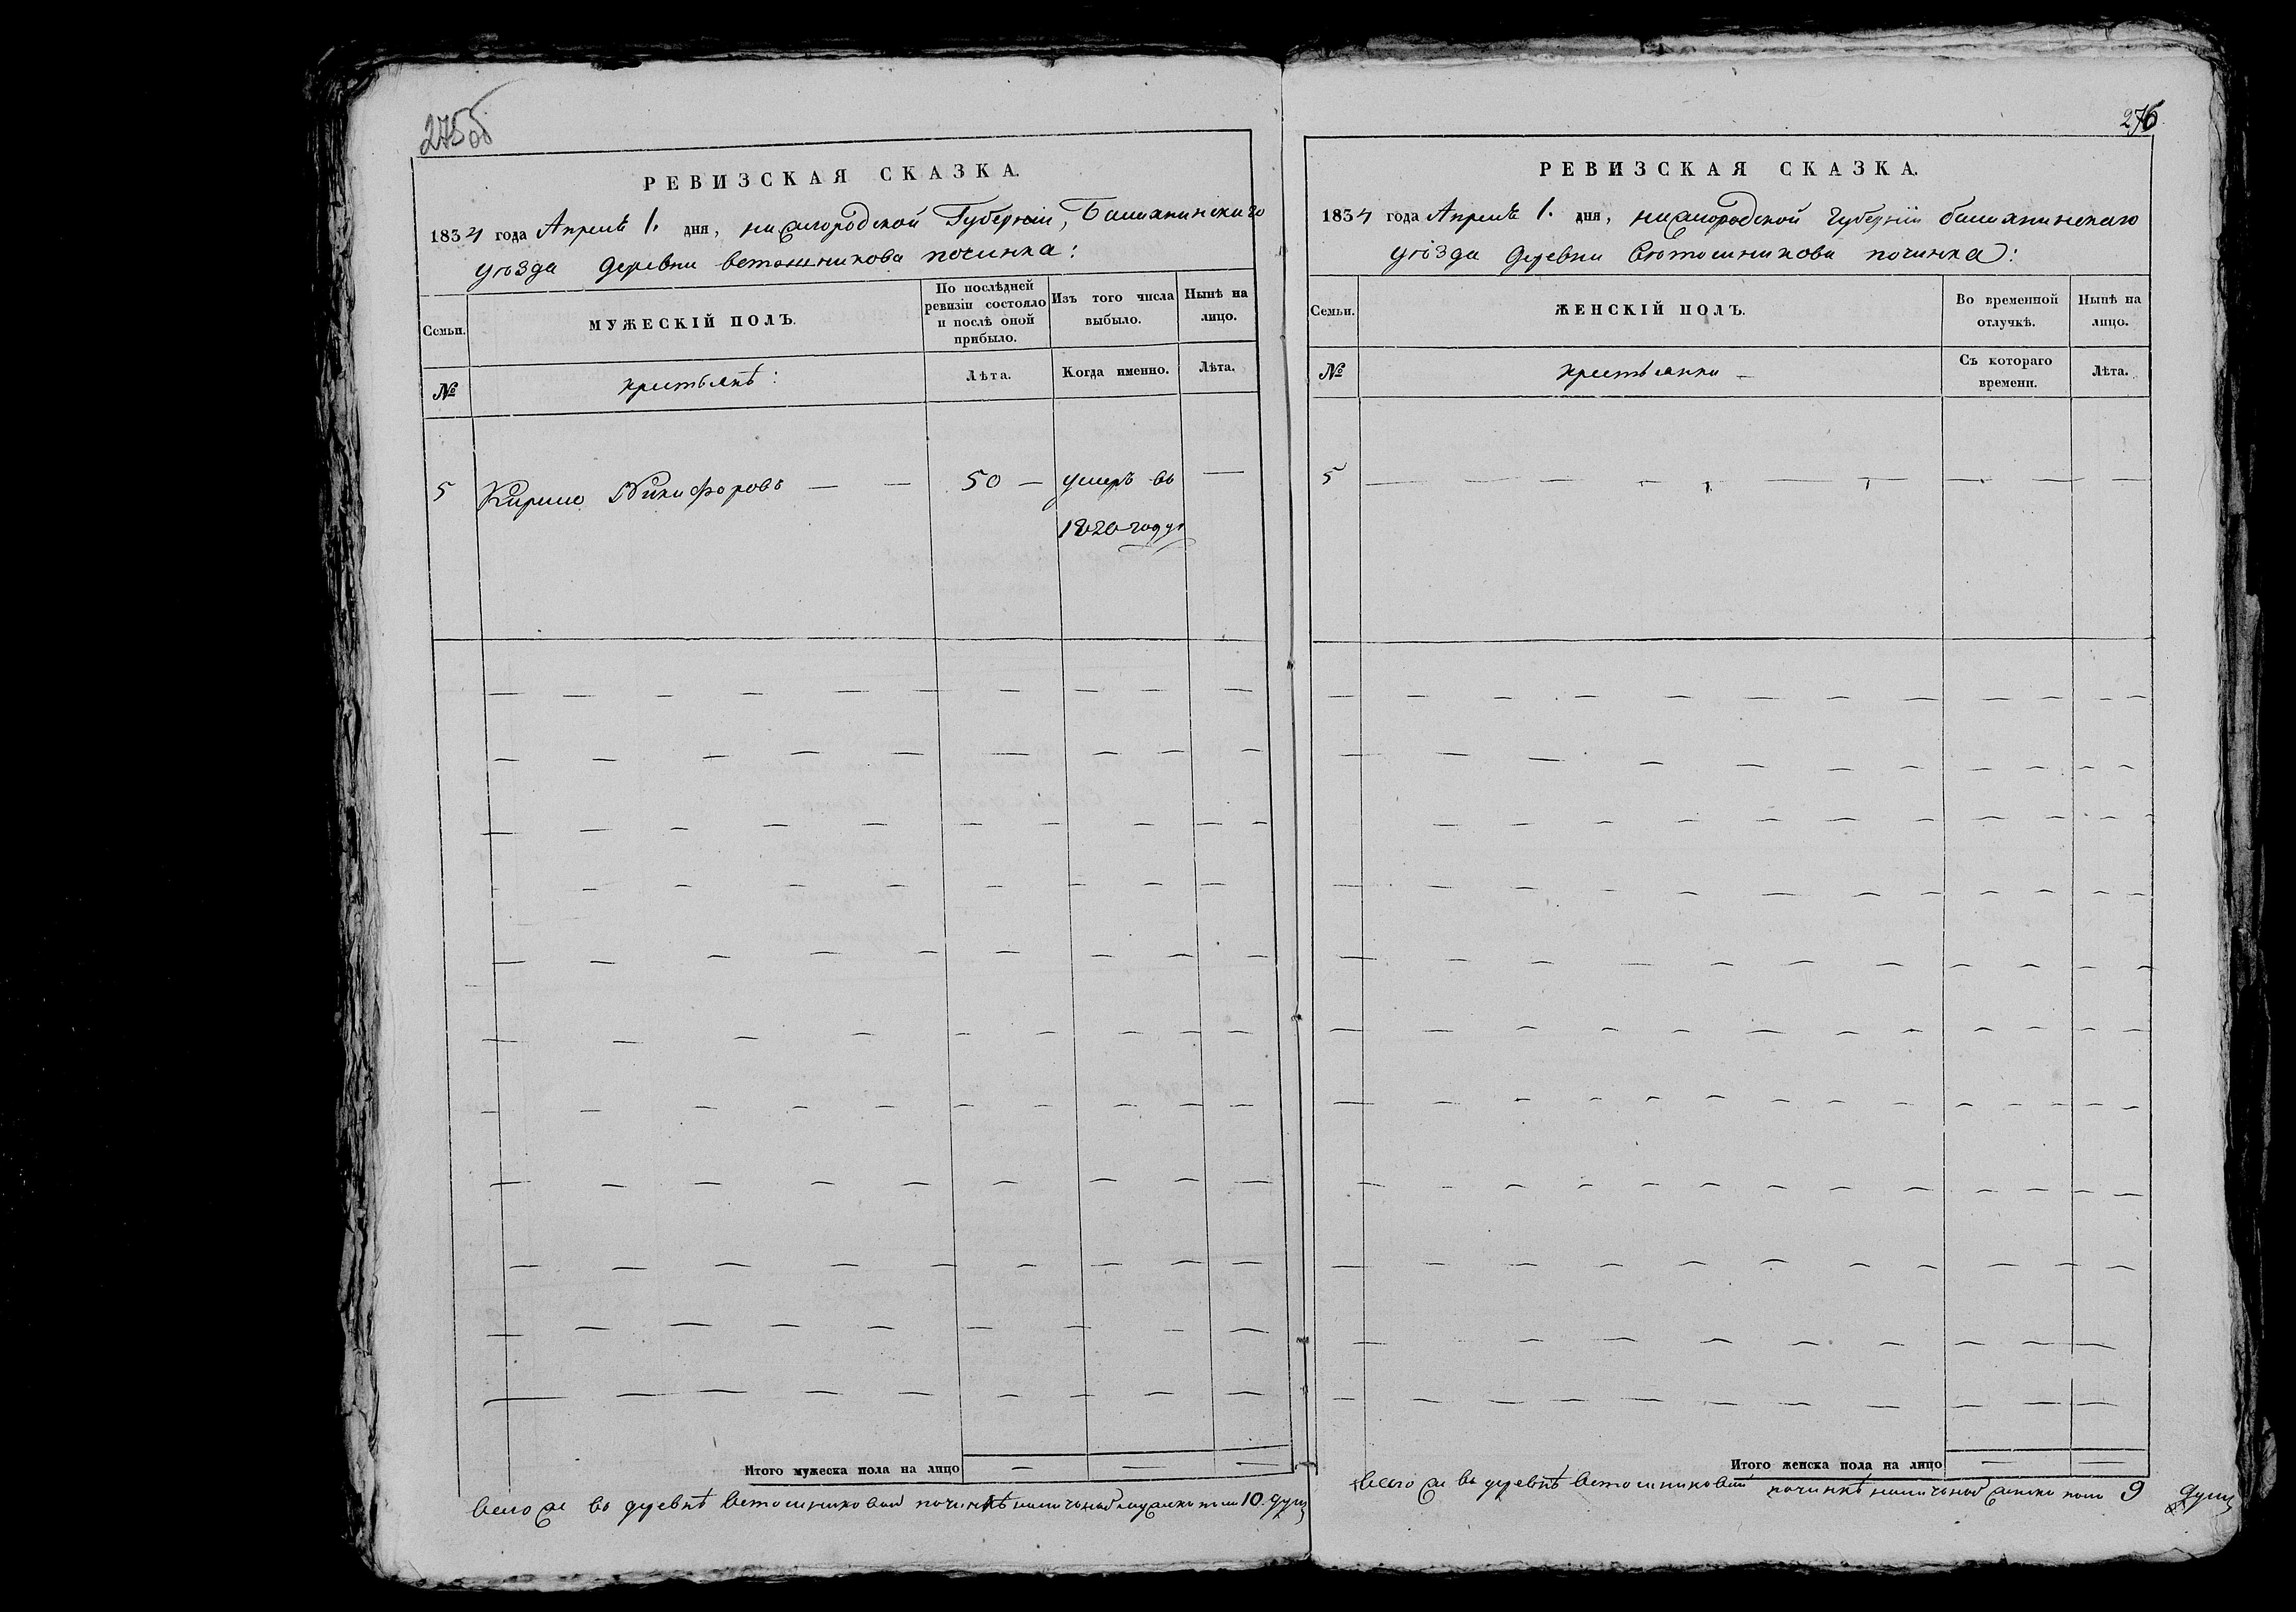 275об
РЕВИЗСКАЯ СКАЗКА.
1834 года Апреля 1. дня, нижегородской Губернiи,
уѣзда деревни ветошникова починка:
Семьи. МУЖЕСКІЙ ПОЛЪ. По послѣдней ревизіи состояло и послѣ оной прибыло. Изъ того числа выбыло. Нынѣ на лицо.
№ крестьянѣ: Лѣта. Когда именно. Лѣта.
5 Кирило Никифоровъ — — 50 — умеръ въ —
1820 году
Итого мужеска пола на лицо — — —
Всего же въ деревнѣ Ветошниковой починкѣ наличныхъ мужска пола 10. душ
276
РЕВИЗСКАЯ СКАЗКА.
1834 года Апреля 1. дня, нижегородской губернiи
уѣзда деревни Ветошникова починка:
Семьи. ЖЕНСКІЙ ПОЛЪ. Во временной отлучкѣ. Нынѣ на лицо.
№ крестьянки — Съ котораго времени. Лѣта.
5
Итого женска пола на лицо — —
Всего же въ деревнѣ Ветошниковой починкѣ наличныхъ женска пола 9 душ